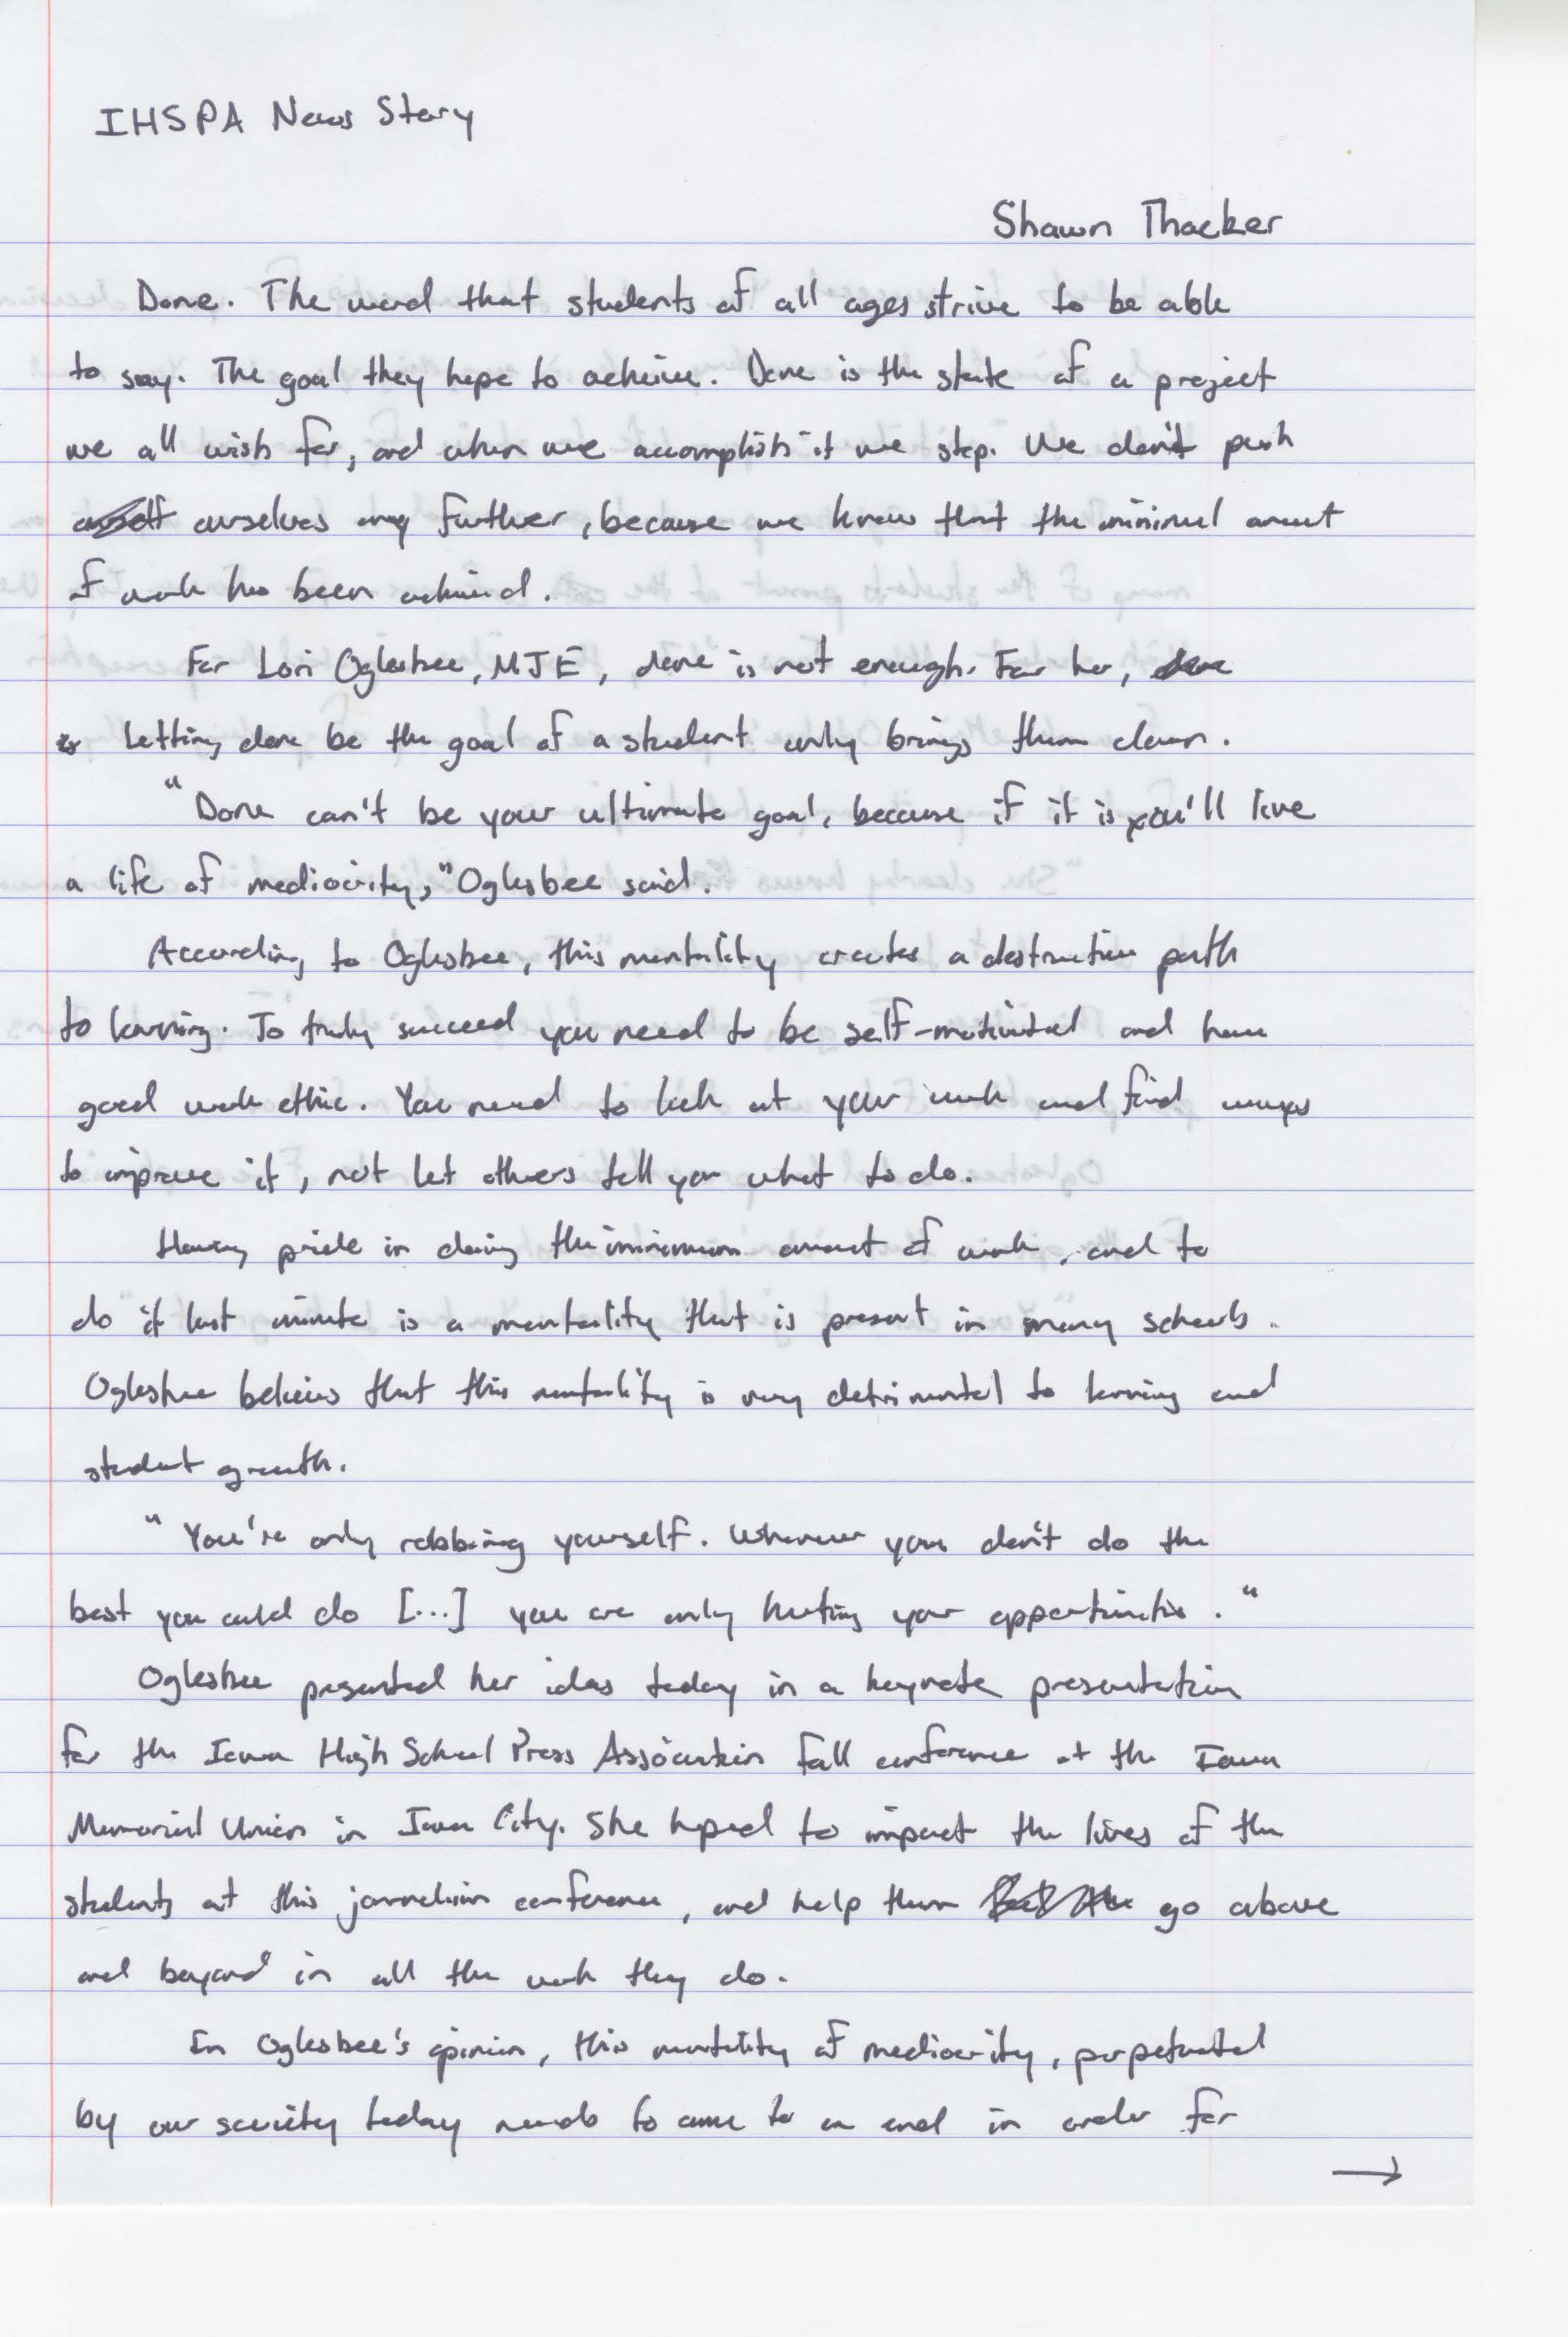 IHSPA News Story
Shawn Thacker
Done. The word that students of all ages strive to be able
to say. The goal they hope to achieve. Done is the state of a project
we all wish for, and when we accomplish it we stop. We don't push
ourselves any further, because we know that the minimal amount
of work has been achieved.
For Lori Oglesbee, MJE, done is not enough. For her, done
is Letting done be the goal of a student only brings them down.
"Done can't be your ultimate goal, because if it is you'll live
a life of mediocrity," Oglesbee said.
According to Oglesbee, this mentality creates a destructive path
to learning. To truly succeed you need to be self-motivated and have
good work ethic. You need to look at your work and find ways
to improve it, not let others tell you what to do.
Having pride in doing the minimum amount of work, and to
do it last minute is a mentality that is present in many schools.
Oglesbee believes that this mentality is very detrimental to learning and
student growth.
"You're only robbing yourself. Whenever you don't do the
best you could do [...] you are only hurting your opportunities."
Oglesbee presented her ideas today in a keynote presentation
for the Iowa High School Press Association fall conference at the Iowa
Memorial Union in Iowa City. She hoped to impact the lives of the
students at this journalism conference, and help them go above
and beyond in all the work they do.
In Oglesbee's opinion, this mentality of mediocrity, perpetuated
by our society today needs to come to an end in order for
→